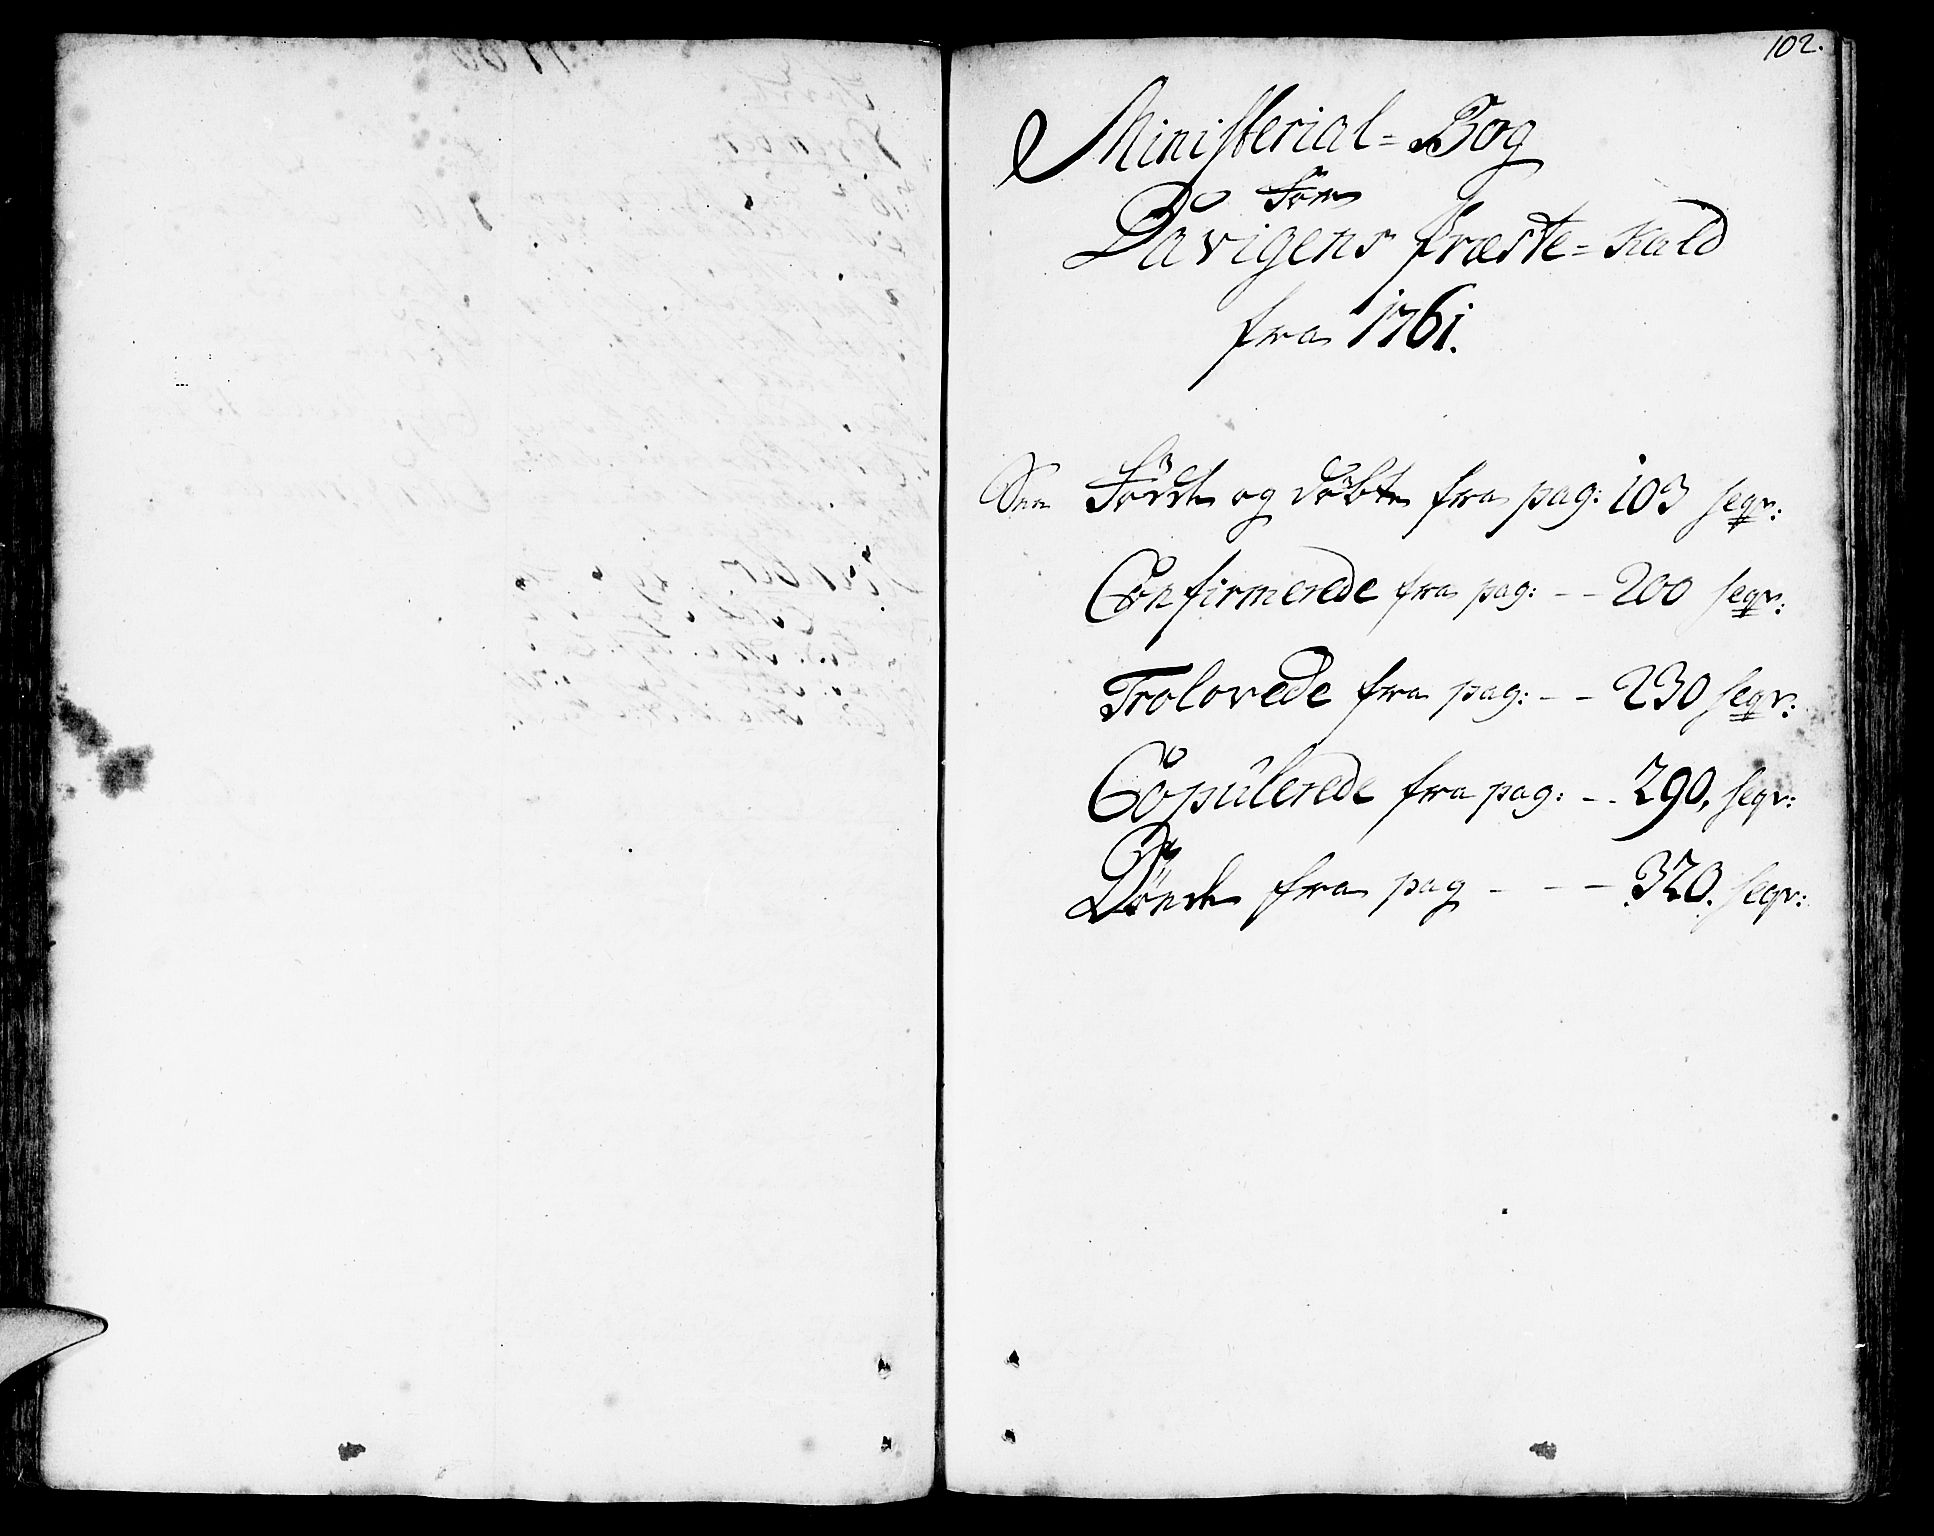 102.
Ministerial=Bog
for
Davigens Præste=Kald
fra 1761.
Fødde og døbte fra pag: 103 seqv:
Confirmerede fra pag: -- 200 seqv:
Trolovede fra pag: -- 230 seqv:
Copulerede fra pag: -- 290, seqv:
Dønde fra pag --- 320. seqv: